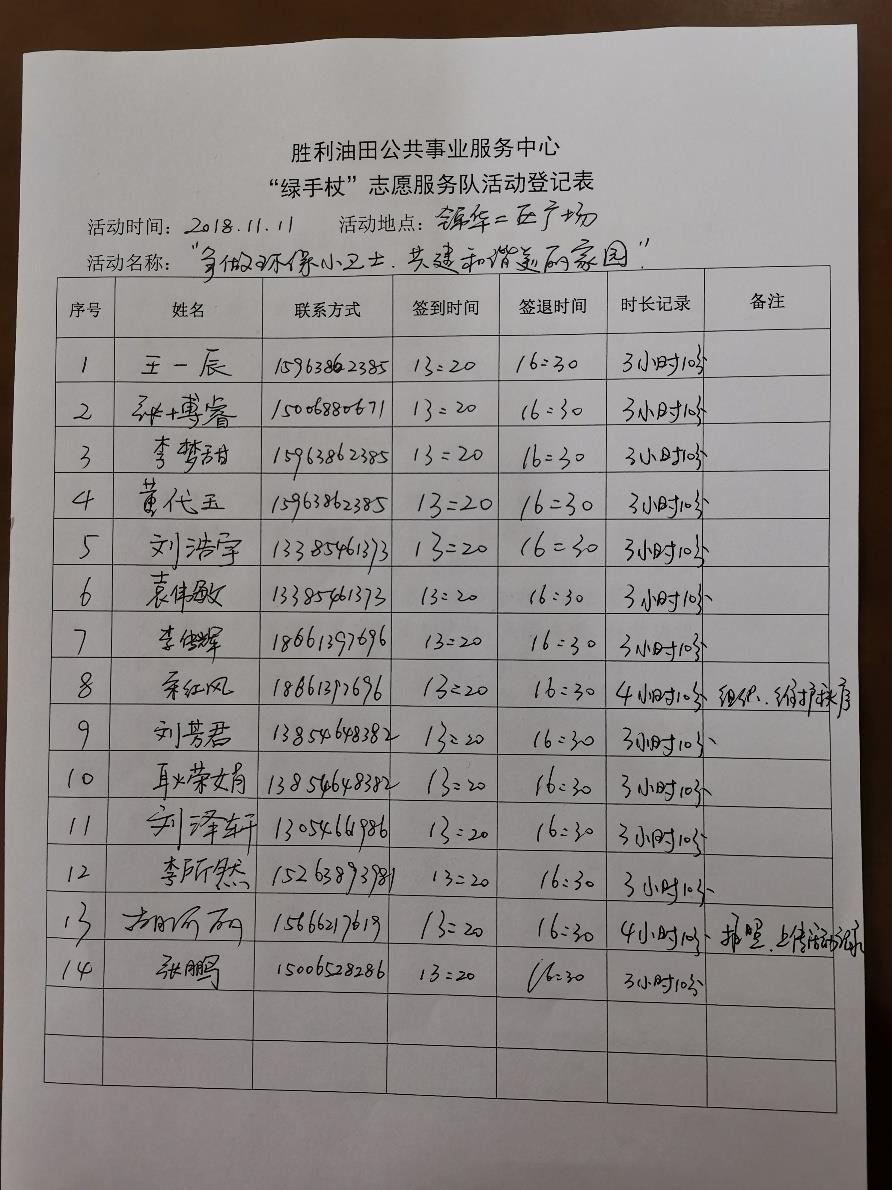 胜利油田公共事业服务中心
“绿手杖”志愿服务队活动登记表
活动时间：2018.11.11 活动地点：锦华二区广场
活动名称：“争做环保小卫士.共建和谐美丽家园”
序号 姓名 联系方式 签到时间 签退时间 时长记录 备注
1 王一辰 15963862385 13:20 16:30 3小时10分
2 张博睿 15006880671 13:20 16:30 3小时10分
3 李梦甜 15963862385 13:20 16:30 3小时10分
4 黄代玉 15963862385 13:20 16:30 3小时10分
5 刘浩宇 13385461373 13:20 16:30 3小时10分
6 袁伟敏 13385461373 13:20 16:30 3小时10分
7 李传辉 18661397696 13:20 16:30 3小时10分
8 红风 18661397696 13:20 16:30 4小时10分 组织、维护秩序
9 刘芳君 13854648382 13:20 16:30 3小时10分
10 耿荣娟 13854648382 13:20 16:30 3小时10分
11 刘泽轩 13054661986 13:20 16:30 3小时10分
12 李所然 15263893981 13:20 16:30 3小时10分
13 丽 15666217619 13:20 16:30 4小时10分 拍照、上传活动记录
14 张鹏 15006528286 13:20 16:30 3小时10分